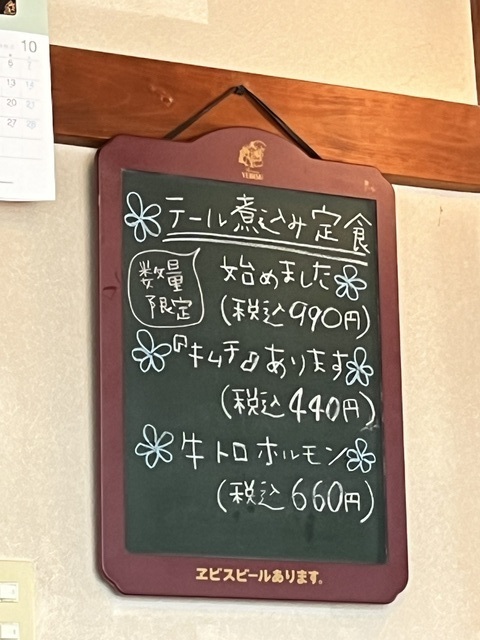 10
YEBISU
テール煮込み定食
数量
限定
始めました
(税込990円)
『キムチ』あります
(税込440円)
牛トロホルモン
(税込660円)
ヱビスビールあります。